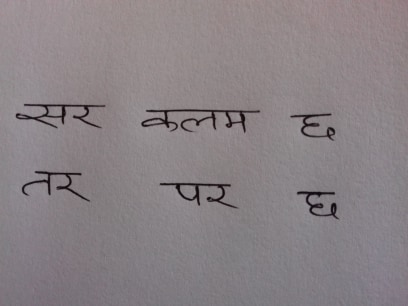 सर कलम छ
तर पर छ